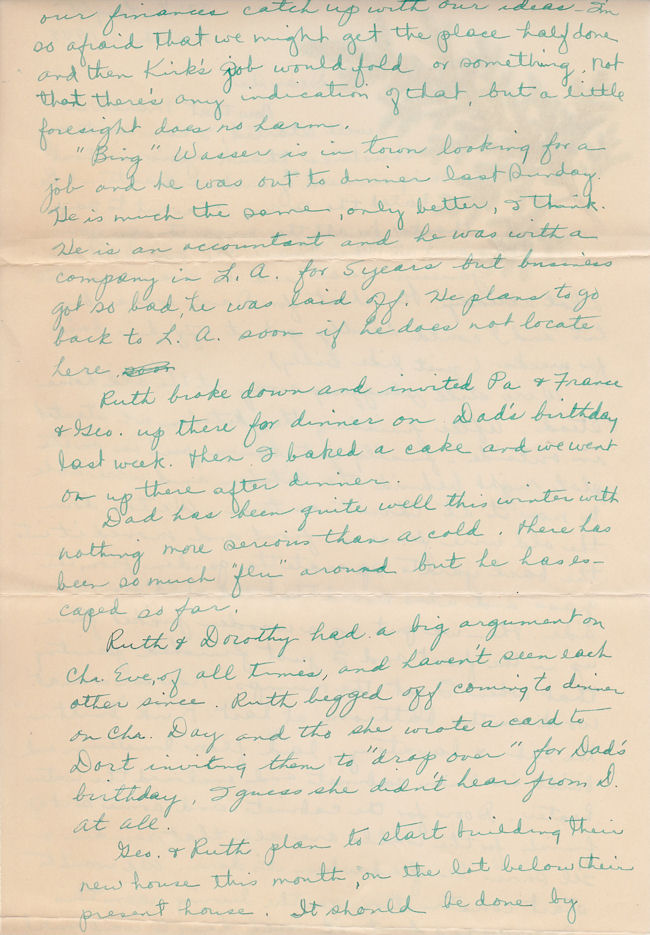 our finances catch up with our ideas - I'm
so afraid that we might get the place half done
and then Kirk's job would fold or something, not
that there's any indication of that, but a little
foresight does no harm.
"Bing" Wasser is in town looking for a
job and he was out to dinner last Sunday.
He is much the same, only better, I think.
He is an accountant and he was with a
company in L. A. for 5 years but business
got so bad, he was laid off. He plans to go
back to L. A. soon if he does not locate
here.
Ruth broke down and invited Pa & France
& Geo. up there for dinner on Dad's birthday
last week. Then I baked a cake and we went
on up there after dinner.
Dad has been quite well this winter with
nothing more serious than a cold. There has
been so much "flu" around but he has es-
caped so far.
Ruth & Dorothy had a big argument on
Chr. Eve, of all times, and haven't seen each
other since. Ruth begged off coming to dinner
on Chr. Day and tho she wrote a card to
Dort inviting them to "drop over" for Dad's
birthday, I guess she didn't hear from D.
at all.
Geo. & Ruth plan to start building their
new house this month, on the lot below their
present house. It should be done by